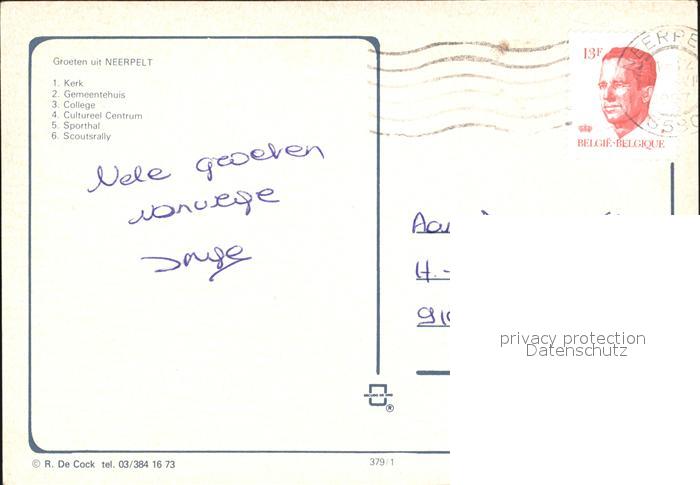 Groeten uit NEERPELT
1. Kerk
2. Gemeentehuis
3. College
4. Cultureel Centrum
5. Sporthal
6. Scoutsrally
13F
BELGIË-BELGIQUE
Vele groeten
vanwege
Inge
H.-
910
privacy protection
Datenschutz
© R. De Cock tel. 03/384 16 73
379/1